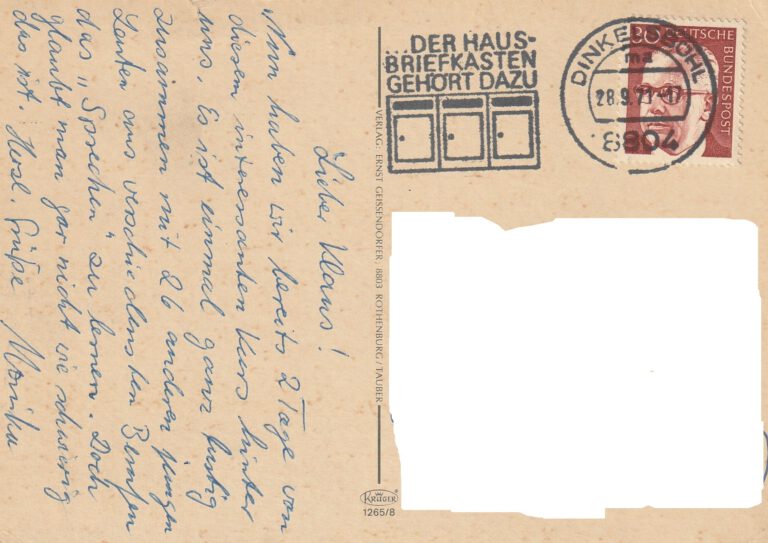 Lieber Klaus!
Nun haben wir bereits 2 Tage von
diesem interessanten Kurs hinter
uns. Es ist einmal ganz lustig
zusammen mit 26 anderen jungen
Leuten aus verschiedensten Berufen
das „Sprechen" zu lernen. Doch
glaubt man gar nicht wie schwierig
das ist. Herzl. Grüße Monika
VERLAG: ERNST GEISSENDÖRFER, 8803 ROTHENBURG/TAUBER
KRÜGER
1265/8
DER HAUS-
BRIEFKASTEN
GEHÖRT DAZU
DINKELSBÜHL
ma
28.9.71-17
8804
30
DEUTSCHE
BUNDESPOST